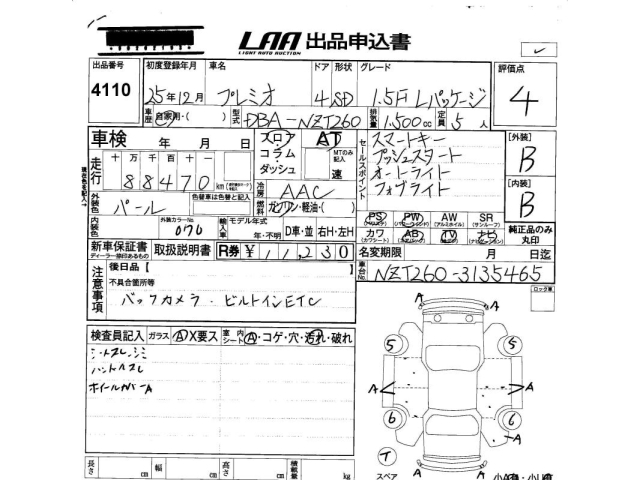 LAA 出品申込書
LIGHT AUTO AUCTION
出品番号 4110
初度登録年月 車名 ドア 形状 グレード 評価点
25年12月 プレミオ 4 SD 1.5F Lパッケージ 4
車歴 自家用・( ) 型式 DBA-NZT260 排気量 1,500cc 定員 5人
車検 年 月 日
フロア コラム ダッシュ
AT
MTのみ記入 速
セールスポイント
スマートキー
プッシュスタート
オートライト
フォグライト
[外装] B
[内装] B
走行 十万千百十
88470 km
冷房 AAC
燃料 ガソリン・軽油・( )
外装色 パール
色替車は色替と記入
内装色
外装カラーNo 070
輸入車 モデル年式 年・不明 D車・並 右H・左H
PS PW AW SR
(アルミホイル) (サンルーフ)
カワ AB TV ナビ
純正品のみ丸印
新車保証書 取扱説明書 R券 ¥11,230
名変期限 月 日迄
車台No. NZT260-3135465
注意事項
後日品【 】
不具合箇所等
バックカメラ・ビルトインETC
ロック車
検査員記入 ガラス A X要ス 室内シート A・コゲ・穴・汚れ・破れ
シートスレ シミ
ハンドルスレ
ホイールカバーA
5 5
A A
A A
6 6
A
T
スペア
A A
長さ cm 幅 cm 高さ cm 積載量 kg